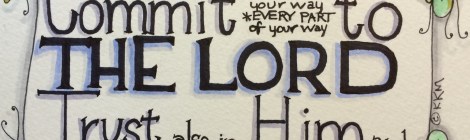 Commit your way to
*EVERY PART
of your way
THE LORD
Trust also in Him
© KKM